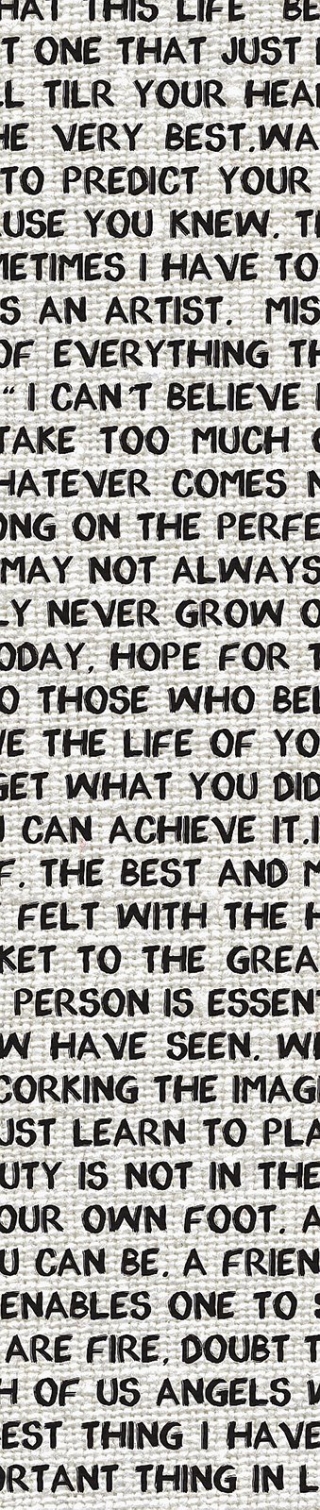 HAT THIS LIFE BE
T ONE THAT JUST
LL TILR YOUR HEA
HE VERY BEST.WA
TO PREDICT YOUR
USE YOU KNEW. T
METIMES I HAVE TO
S AN ARTIST. MIS
OF EVERYTHING TH
“ I CAN'T BELIEVE
TAKE TOO MUCH
HATEVER COMES N
ONG ON THE PERFE
MAY NOT ALWAYS
LY NEVER GROW O
ODAY, HOPE FOR T
O THOSE WHO BEL
VE THE LIFE OF YO
GET WHAT YOU DID
U CAN ACHIEVE IT.I
F. THE BEST AND M
FELT WITH THE H
KET TO THE GREA
PERSON IS ESSENT
W HAVE SEEN. WI
CORKING THE IMAGI
UST LEARN TO PLA
UTY IS NOT IN THE
OUR OWN FOOT. A
U CAN BE. A FRIEN
ENABLES ONE TO S
ARE FIRE, DOUBT T
H OF US ANGELS W
EST THING I HAVE
ORTANT THING IN L